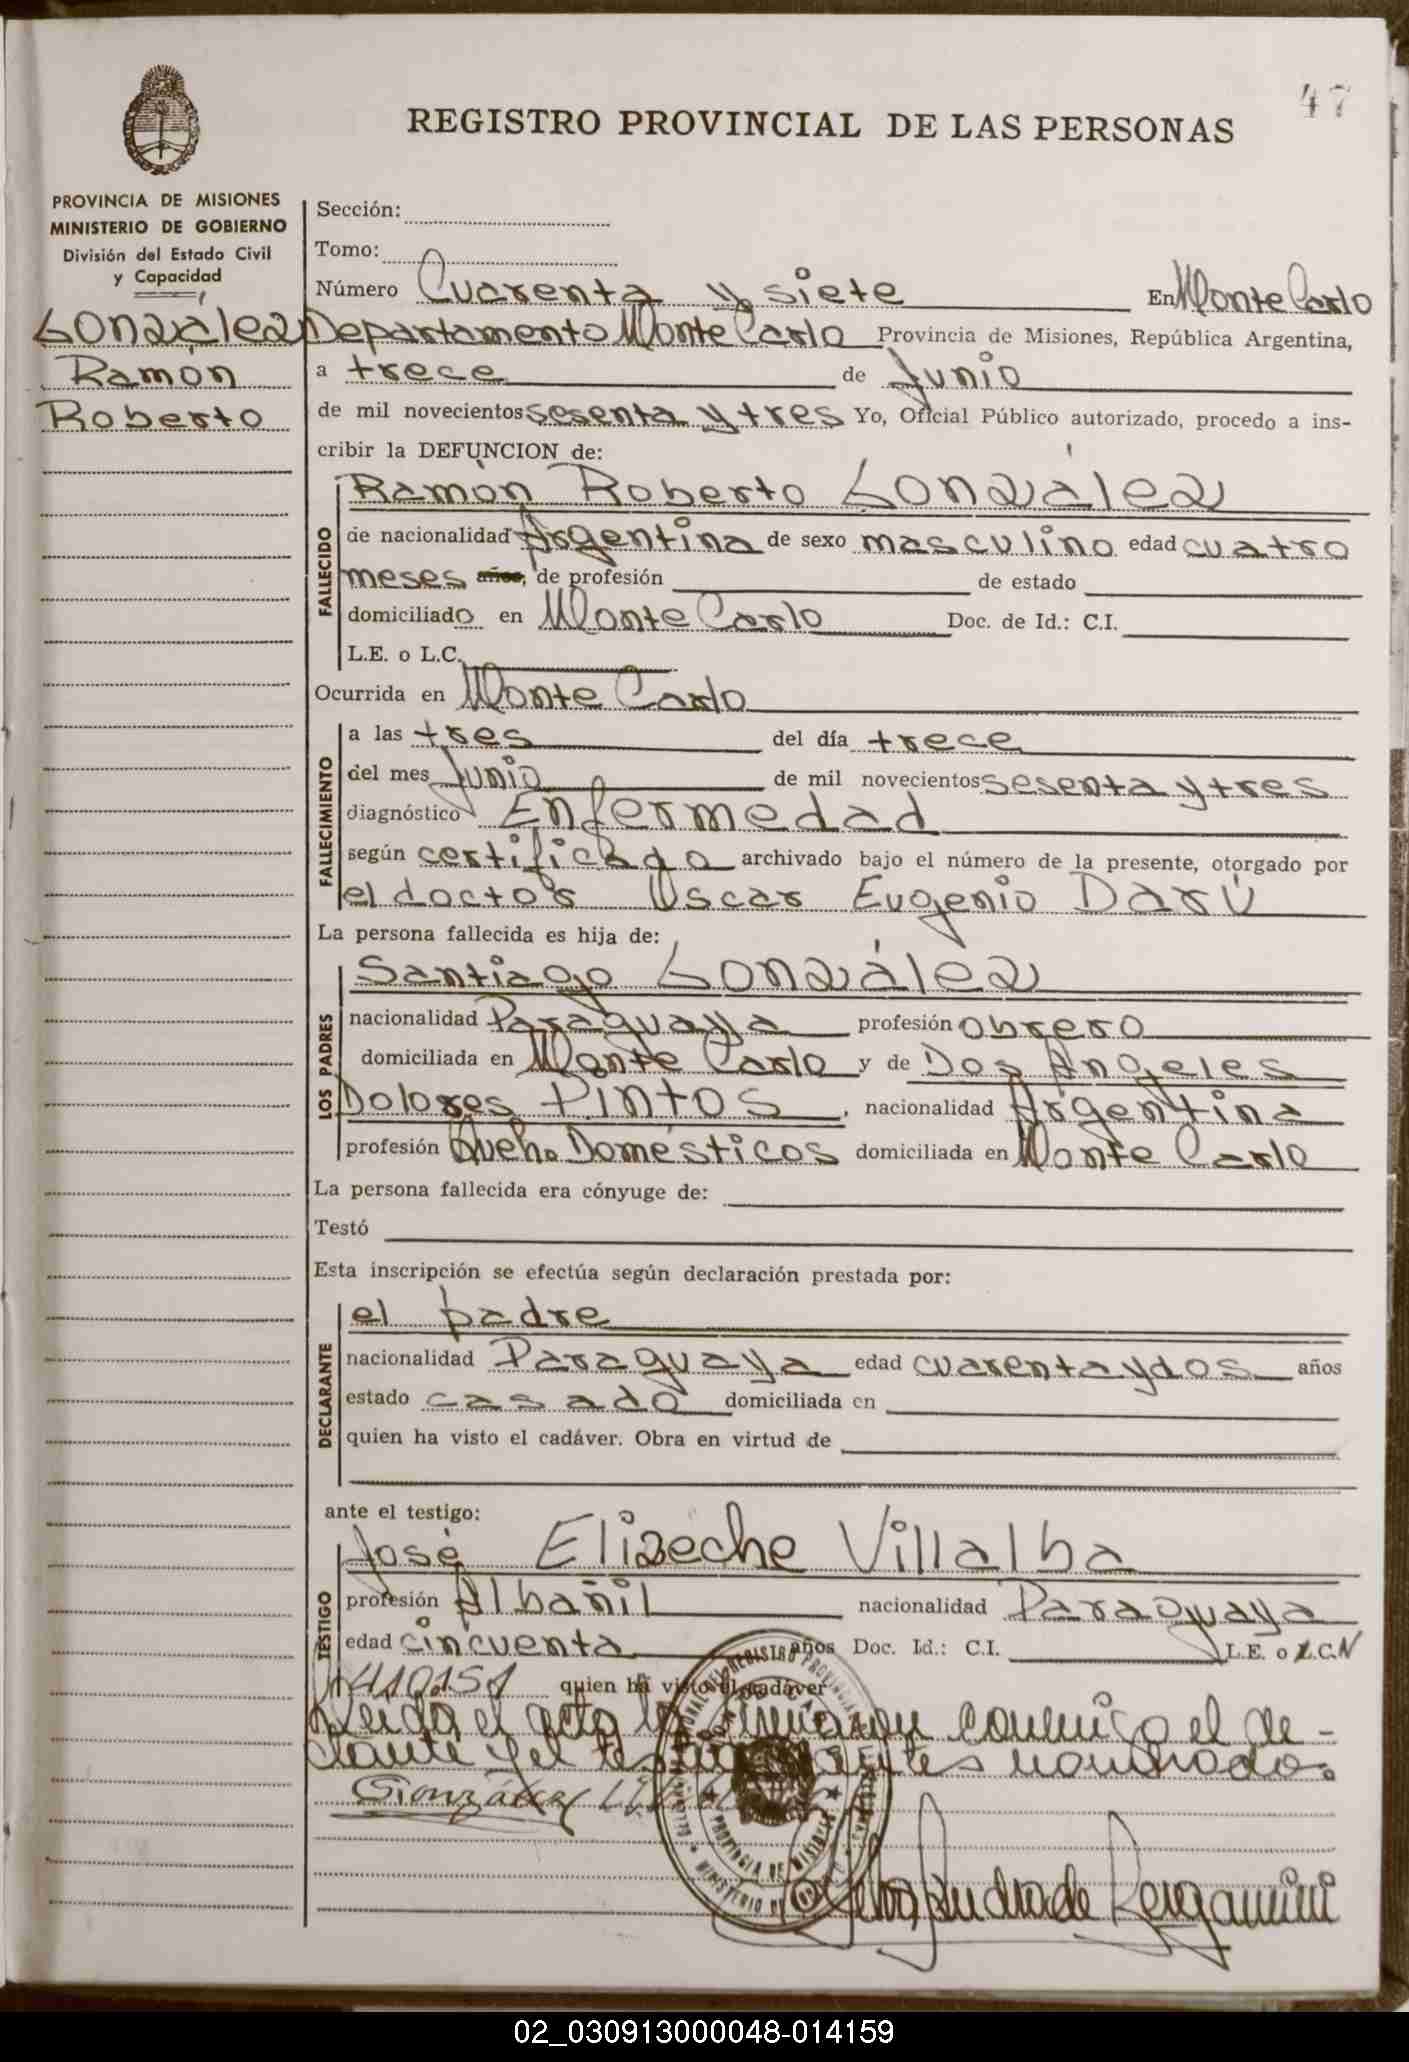 47
REGISTRO PROVINCIAL DE LAS PERSONAS
PROVINCIA DE MISIONES
MINISTERIO DE GOBIERNO
División del Estado Civil
y Capacidad
González
Ramón
Roberto
Sección:
Tomo:
Número Cuarenta y siete En Monte Carlo
Departamento Monte Carlo Provincia de Misiones, República Argentina,
a trece de Junio
de mil novecientos sesenta y tres Yo, Oficial Público autorizado, procedo a ins-
cribir la DEFUNCION de:
FALLECIDO
Ramón Roberto González
de nacionalidad Argentina de sexo masculino edad cuatro
meses años, de profesión de estado
domiciliado en Monte Carlo Doc. de Id.: C.I.
L.E. o L.C.
Ocurrida en Monte Carlo
FALLECIMIENTO
a las tres del día trece
del mes Junio de mil novecientos sesenta y tres
diagnóstico Enfermedad
según certificado archivado bajo el número de la presente, otorgado por
el doctor Oscar Eugenio Darú
La persona fallecida es hija de:
LOS PADRES
Santiago González
nacionalidad Paraguaya profesión obrero
domiciliada en Monte Carlo y de Dos Angeles
Dolores Pintos, nacionalidad Argentina
profesión Queh. Domésticos domiciliada en Monte Carlo
La persona fallecida era cónyuge de:
Testó
Esta inscripción se efectúa según declaración prestada por:
DECLARANTE
el padre
nacionalidad Paraguaya edad cuarenta y dos años
estado casado domiciliada en
quien ha visto el cadáver. Obra en virtud de
ante el testigo:
TESTIGO
José Elizeche Villalba
profesión Albañil nacionalidad Paraguaya
edad cincuenta años Doc. Id.: C.I. L.E. o L.C. N
410.151 quien ha visto el cadáver
Leida el acta la firmaron conmigo el de-
clarante y el testigo antes nombrado.
González
PROVINCIA DE MISIONES
de Bergamini
02_030913000048-014159